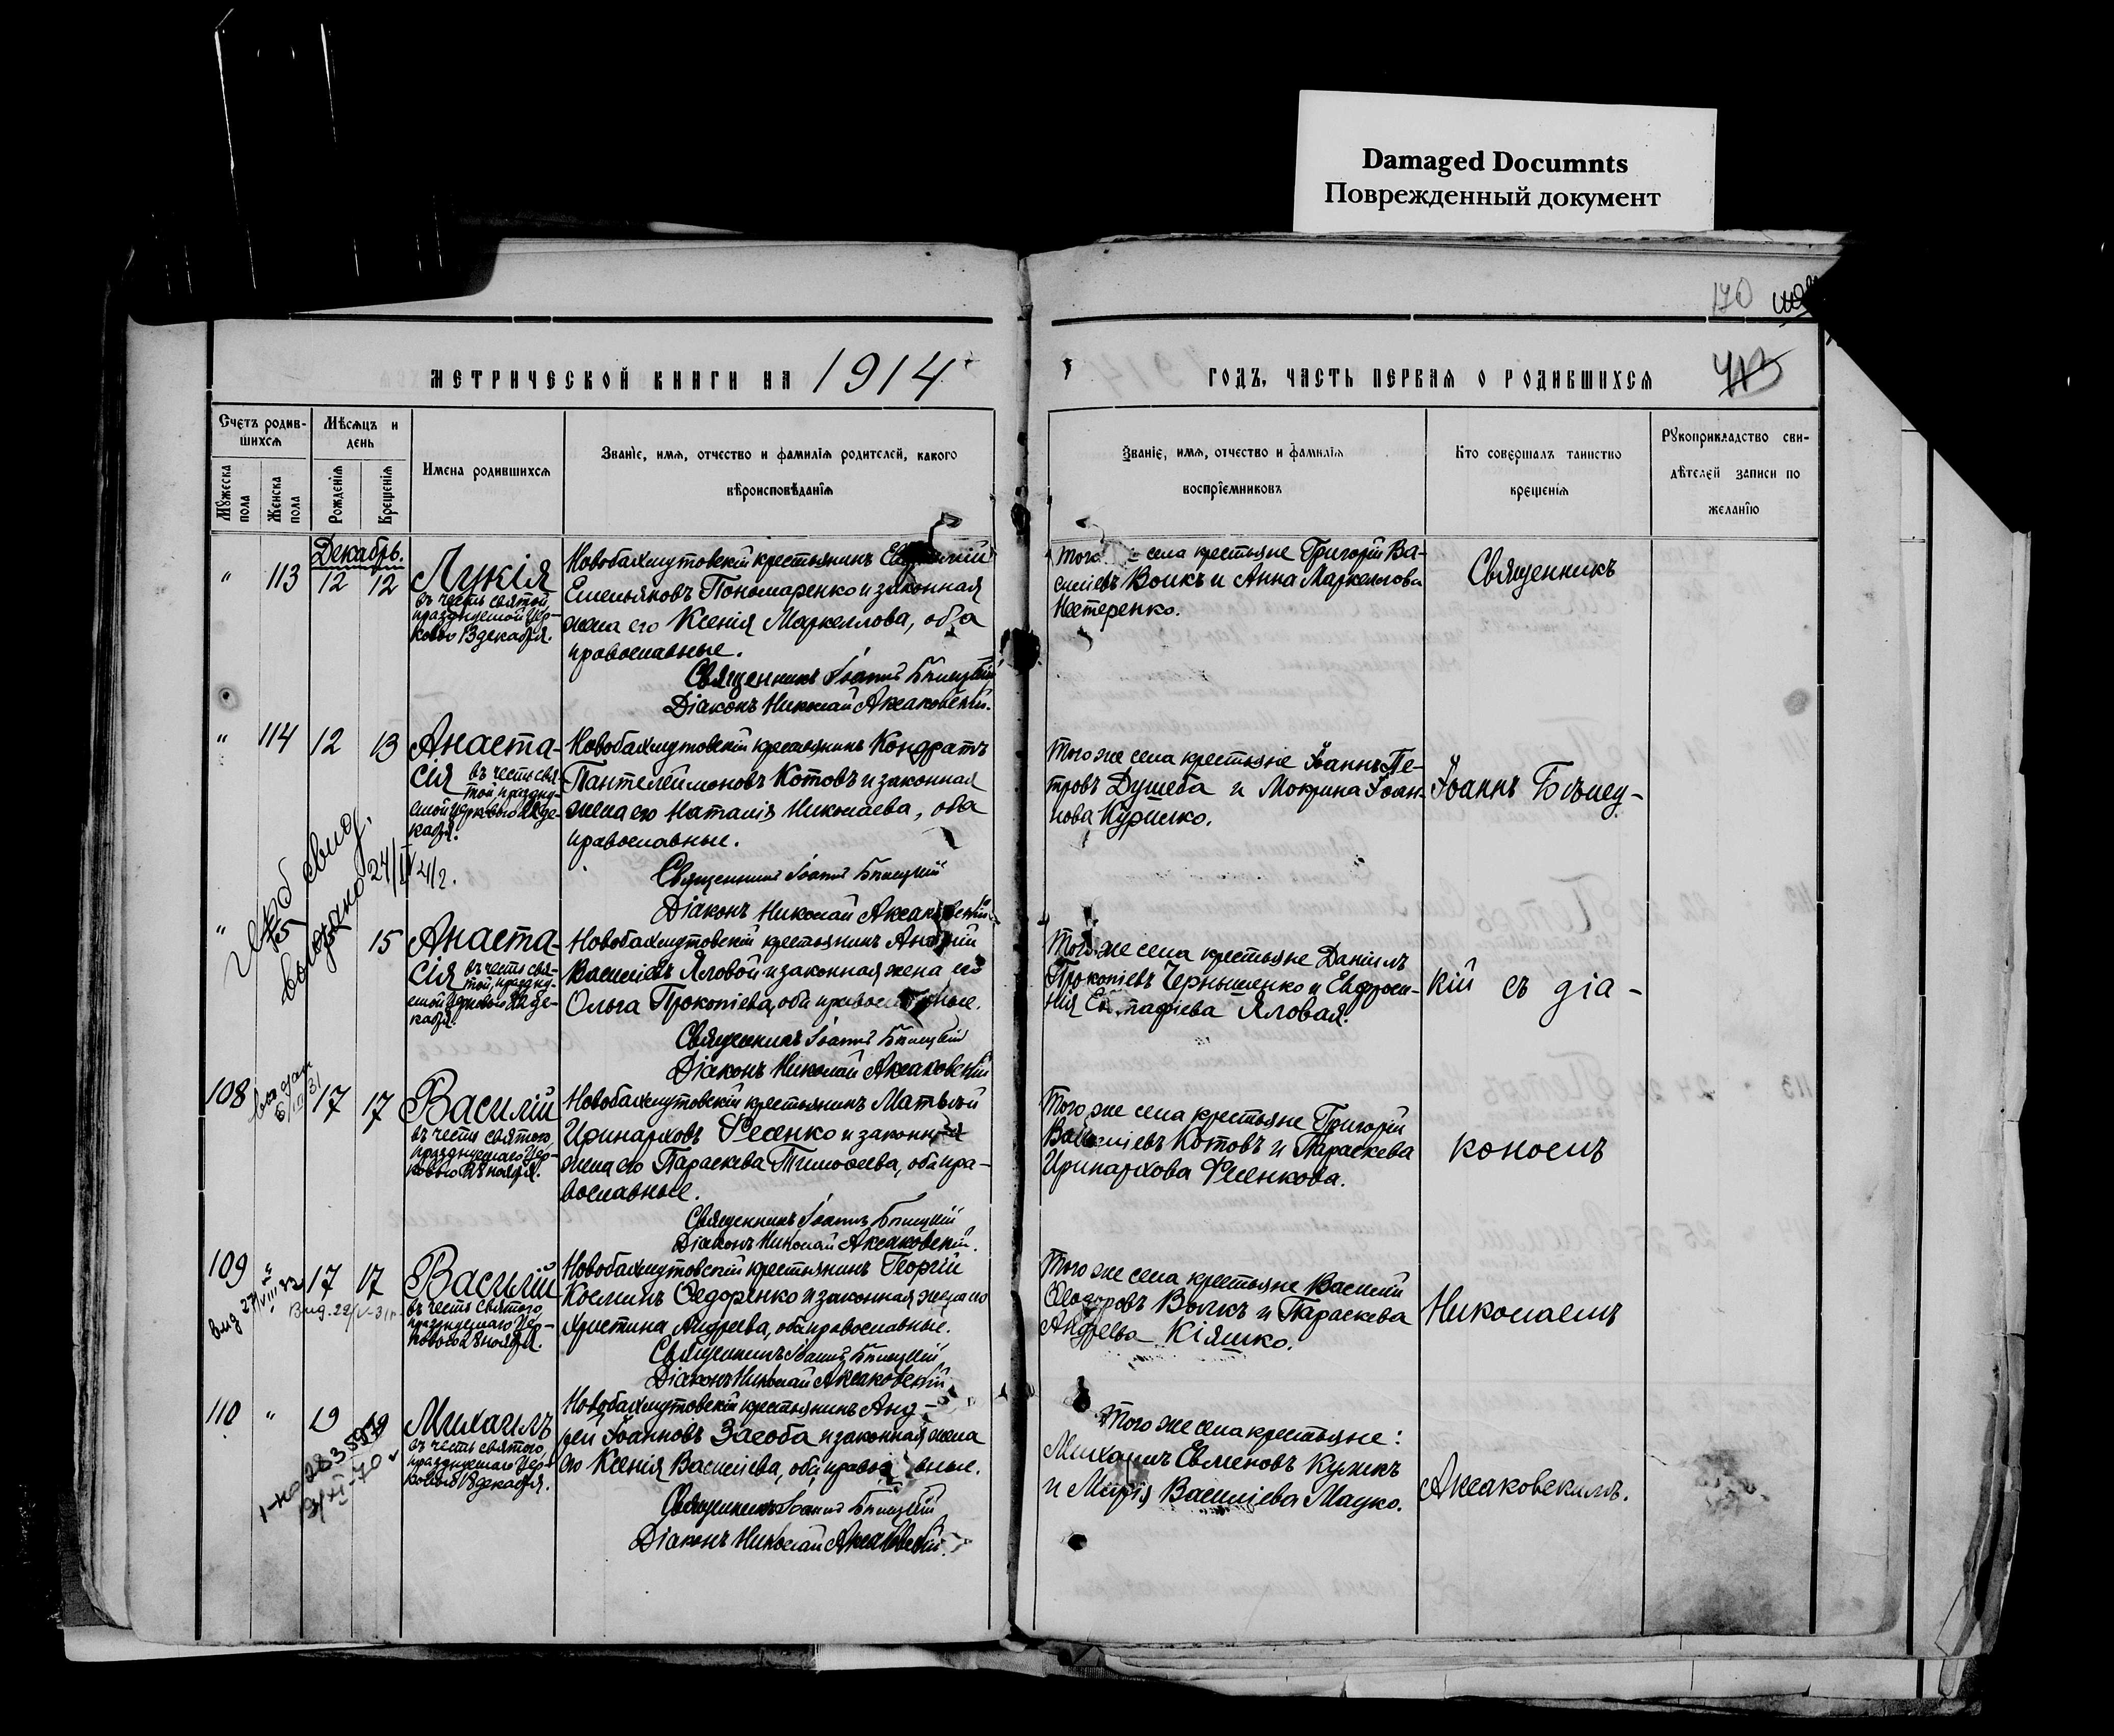 Damaged Documnts
Поврежденный документ
170
МЕТРИЧЕСКОЙ КНИГИ НА 1914
ГОДЪ, ЧАСТЬ ПЕРВАЯ О РОДИВШИХСЯ
Счетъ родив-
шихся
Мѣсяцъ и
день
Мужеска
пола
Женска
пола
Рожденія
Крещенія
Имена родившихся
Званіе, имя, отчество и фамилія родителей, какого
вѣроисповѣданія
Званіе, имя, отчество и фамилія
воспріемниковъ
Кто совершалъ таинство
крещенія
Рукоприкладство сви-
дѣтелей записи по
желанію
Декабрь.
" 113 12 12
Лукія
въ честь святой,
празднуемой Цер-
ковью 13 декабря.
Новобахмутовскій крестьянинъ
Емельяновъ Пономаренко и законная
жена его Ксенія Маркеллова, оба
православные.
Священникъ Іоаннъ Бѣлецкій
Діаконъ Николай Аксаковскій.
Того села крестьяне Григорій Ва-
сильевъ Волкъ и Анна Маркеллова
Нестеренко.
Священникъ
" 114 12 13
Анаста-
сія въ честь свя-
той, праздну-
емой Церковью 22 де-
кабря.
Новобахмутовскій крестьянинъ Кондратъ
Пантелеймоновъ Котовъ и законная
жена его Наталія Николаева, оба
православные.
Священникъ Іоаннъ Бѣлецкій
Діаконъ Николай Аксаковскій
Того же села крестьяне Іоаннъ Пе-
тровъ Душеба и Мокрина Іоан-
нова Курилко.
Іоаннъ Бѣлец-
"
свид.
выдано
15
Анаста-
сія въ честь свя-
той, праздну-
емой Церковью 22 де-
кабря.
Новобахмутовскій крестьянинъ
Васильевъ Яловой и законная жена его
Ольга Прокопіева, оба
Священникъ Іоаннъ Бѣлецкій
Діаконъ Николай Аксаковскій
Того же села крестьяне Даніилъ
Прокопіевъ Чернышенко и Евфроси-
нія Яловая.
кій съ діа-
108 17 17
Василій
въ честь святого,
празднуемаго Цер-
ковью
Новобахмутовскій крестьянинъ Матѳей
Иринарховъ Фесенко и законная
жена его Параскева Тимоѳеева, оба пра-
вославные.
Священникъ Іоаннъ Бѣлецкій
Діаконъ Николай Аксаковскій.
Того же села крестьяне Григорій
Васильевъ Котовъ и Параскева
Иринархова Фесенкова.
кономъ
109 " 17 17
Василій
въ честь святого,
празднуемаго Цер-
ковью
Новобахмутовскій крестьянинъ Георгій
Косминъ Ѳедоренко и законная жена его
Христина Андреева, оба православные.
Священникъ Іоаннъ Бѣлецкій
Діаконъ Николай Аксаковскій
Того же села крестьяне Василій
Ѳеодоровъ Волкъ и Параскева
Андреева Кіяшко.
Николаемъ
110 " 19 19
Михаилъ
въ честь святого,
празднуемаго Цер-
ковью 18 декабря.
Новобахмутовскій крестьянинъ Анд-
рей Іоанновъ Засоба и законная жена
его Ксенія Васильева, оба
Священникъ Іоаннъ Бѣлецкій
Діаконъ Николай Аксаковскій.
Того же села крестьяне:
Михаилъ Евменовъ Куликъ
и Марія Васильева Мацко.
Аксаковскимъ.